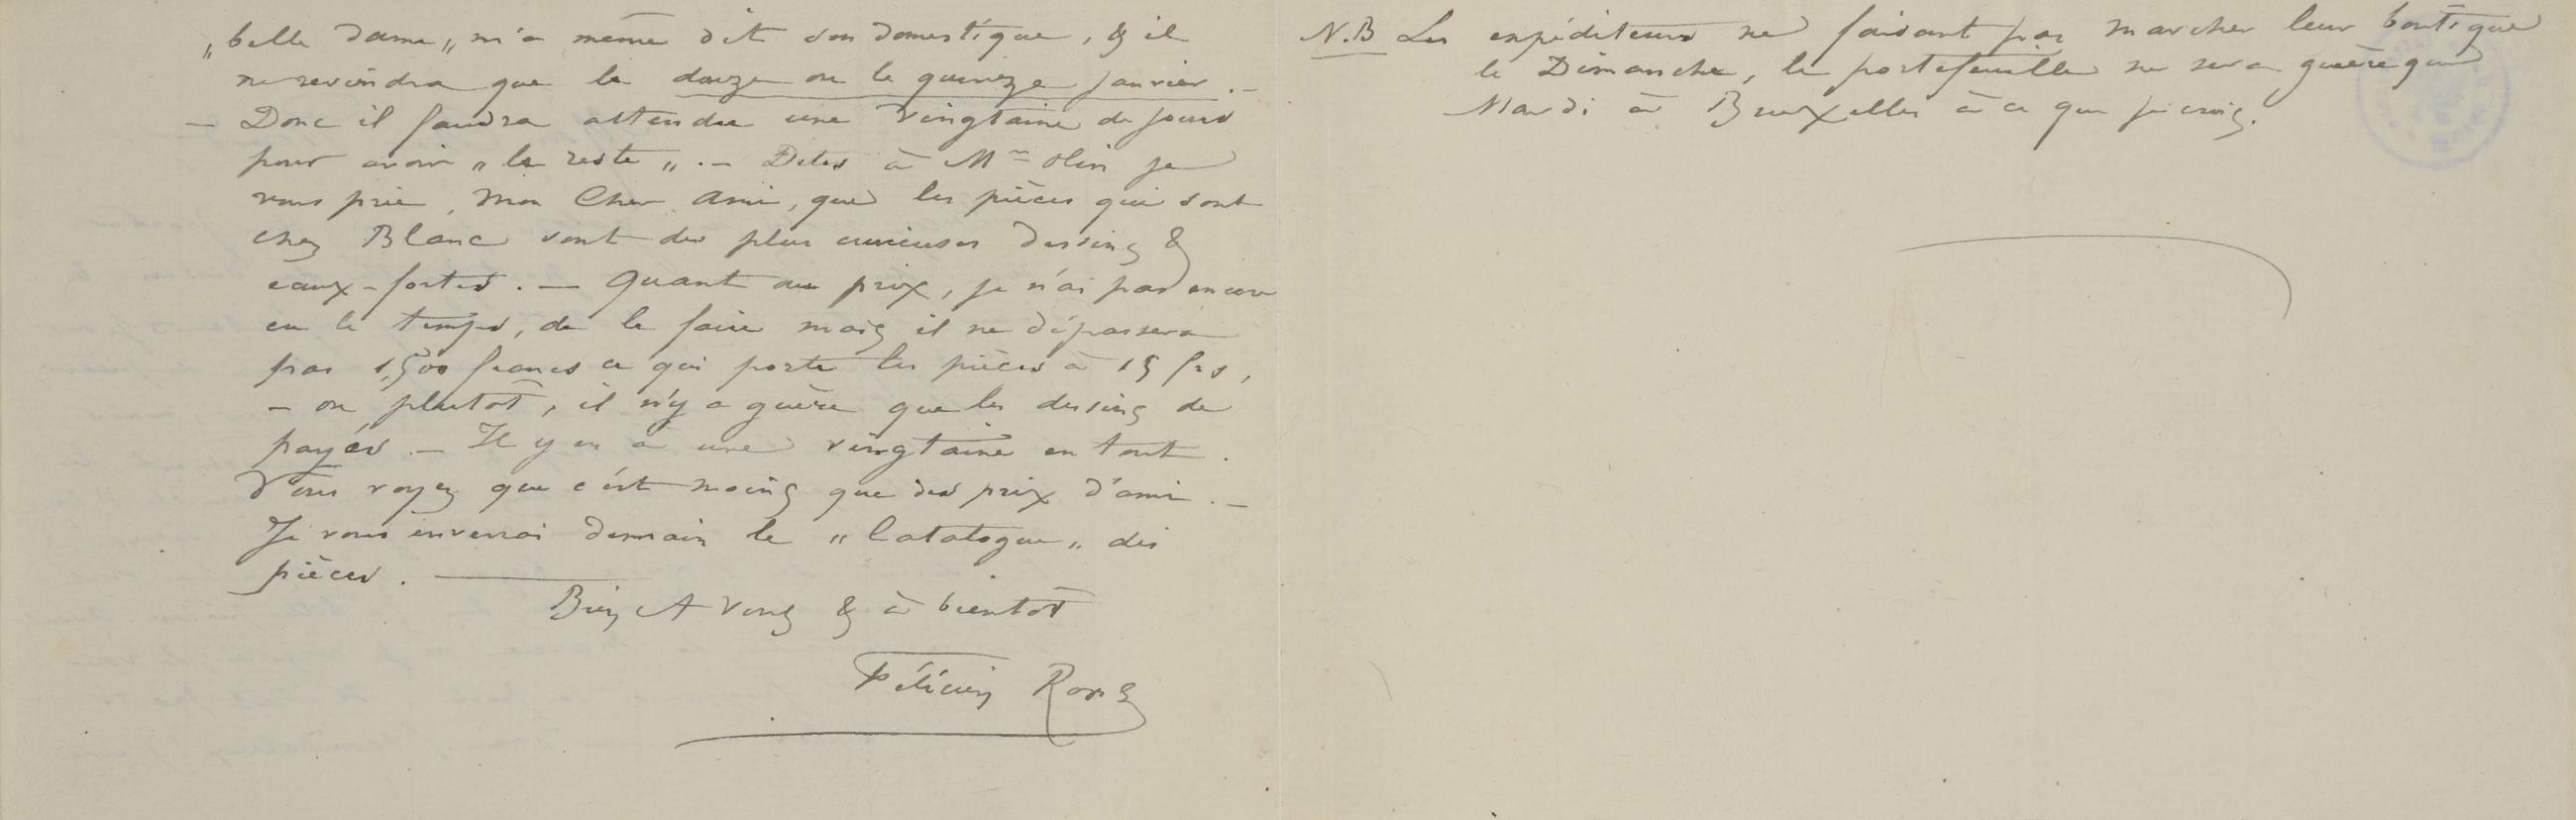 „belle dame„ m'a même dit son domestique, & il
ne reviendra que le douze ou le quinze janvier. –
– Donc il faudra attendre une vingtaine de jours
pour avoir „le reste„. – Dites à Mr Olin je
vous prie, Mon Cher Ami, que les pièces qui sont
chez Blanc sont des plus curieuses dessins &
eaux-fortes. — Quant au prix, je n'ai pas encore
eu le temps, de le faire mais il ne dépassera
pas 1,500 francs ce qui porte les pièces à 15 frs,
– ou plutôt, il n'y a guère que les dessins de
payés. – Il y en a une vingtaine en tout.
Vous voyez que c'est moins que des prix d'ami. –
Je vous enverrai demain le „Catalogue„ des
pièces. ———
Bien A Vous & à bientôt
Félicien Rops
N.B Les expéditeurs ne faisant pas marcher leur boutique
le Dimanche, le portefeuille ne sera guère que
Mardi à Bruxelles à ce que je crois.